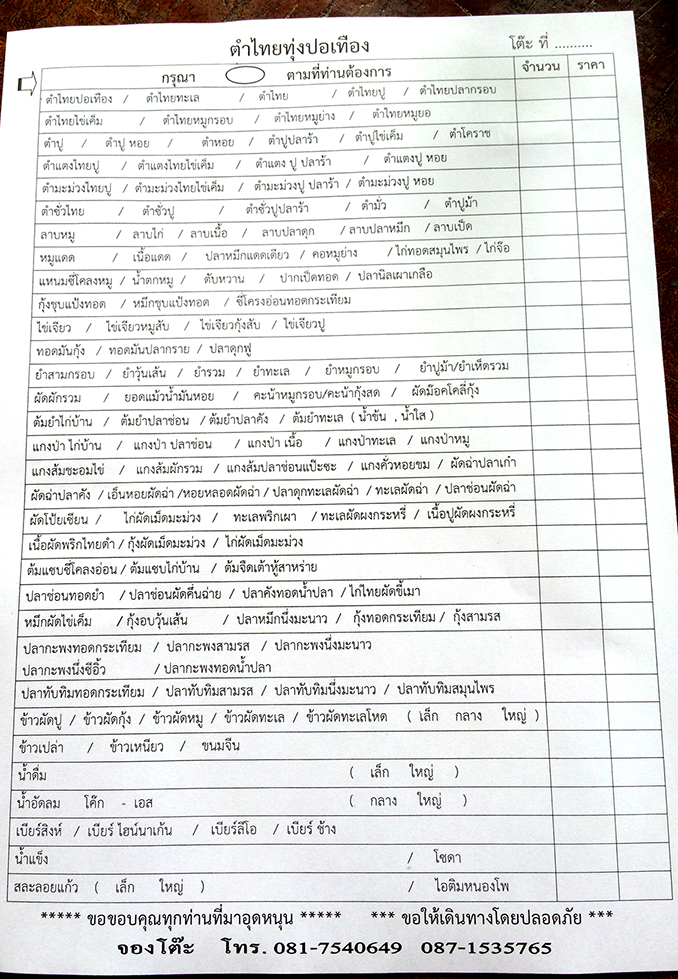 ตำไทยทุ่งปอเทือง โต๊ะ ที่ ..........
กรุณา ตามที่ท่านต้องการ จำนวน ราคา
ตำไทยปอเทือง / ตำไทยทะเล / ตำไทย / ตำไทยปู / ตำไทยปลากรอบ
ตำไทยไข่เค็ม / ตำไทยหมูกรอบ / ตำไทยหมูย่าง / ตำไทยหมูยอ
ตำปู / ตำปู หอย / ตำหอย / ตำปูปลาร้า / ตำปูไข่เค็ม / ตำโคราช
ตำแตงไทยปู / ตำแตงไทยไข่เค็ม / ตำแตง ปู ปลาร้า / ตำแตงปู หอย
ตำมะม่วงไทยปู / ตำมะม่วงไทยไข่เค็ม / ตำมะม่วงปู ปลาร้า / ตำมะม่วงปู หอย
ตำซั่วไทย / ตำซั่วปู / ตำซั่วปูปลาร้า / ตำมั่ว / ตำปูม้า
ลาบหมู / ลาบไก่ / ลาบเนื้อ / ลาบปลาดุก / ลาบปลาหมึก / ลาบเป็ด
หมูแดด / เนื้อแดด / ปลาหมึกแดดเดียว / คอหมูย่าง / ไก่ทอดสมุนไพร / ไก่จ๊อ
แหนมซี่โครงหมู / น้ำตกหมู / ตับหวาน / ปากเป็ดทอด / ปลานิลเผาเกลือ
กุ้งชุบแป้งทอด / หมึกชุบแป้งทอด / ซี่โครงอ่อนทอดกระเทียม
ไข่เจียว / ไข่เจียวหมูสับ / ไข่เจียวกุ้งสับ / ไข่เจียวปู
ทอดมันกุ้ง / ทอดมันปลากราย / ปลาดุกฟู
ยำสามกรอบ / ยำวุ้นเส้น / ยำรวม / ยำทะเล / ยำหมูกรอบ / ยำปูม้า/ยำเห็ดรวม
ผัดผักรวม / ยอดแม้วน้ำมันหอย / คะน้าหมูกรอบ/คะน้ากุ้งสด / ผัดม๊อคโคลี่กุ้ง
ต้มยำไก่บ้าน / ต้มยำปลาช่อน / ต้มยำปลาคัง / ต้มยำทะเล ( น้ำข้น , น้ำใส )
แกงป่า ไก่บ้าน / แกงป่า ปลาช่อน / แกงป่า เนื้อ / แกงป่าทะเล / แกงป่าหมู
แกงส้มชะอมไข่ / แกงส้มผักรวม / แกงส้มปลาช่อนแป๊ะซะ / แกงคั่วหอยขม / ผัดฉ่าปลาเก๋า
ผัดฉ่าปลาคัง / เอ็นหอยผัดฉ่า /หอยหลอดผัดฉ่า / ปลาดุกทะเลผัดฉ่า / ทะเลผัดฉ่า / ปลาช่อนผัดฉ่า
ผัดโป๊ยเซียน / ไก่ผัดเม็ดมะม่วง / ทะเลพริกเผา / ทะเลผัดผงกระหรี่ / เนื้อปูผัดผงกระหรี่
เนื้อผัดพริกไทยดำ / กุ้งผัดเม็ดมะม่วง / ไก่ผัดเม็ดมะม่วง
ต้มแซบซี่โครงอ่อน / ต้มแซบไก่บ้าน / ต้มจืดเต้าหู้สาหร่าย
ปลาช่อนทอดยำ / ปลาช่อนผัดคื่นฉ่าย / ปลาคังทอดน้ำปลา / ไก่ไทยผัดขี้เมา
หมึกผัดไข่เค็ม / กุ้งอบวุ้นเส้น / ปลาหมึกนึ่งมะนาว / กุ้งทอดกระเทียม / กุ้งสามรส
ปลากะพงทอดกระเทียม / ปลากะพงสามรส / ปลากะพงนึ่งมะนาว
ปลากะพงนึ่งซีอิ้ว / ปลากะพงทอดน้ำปลา
ปลาทับทิมทอดกระเทียม / ปลาทับทิมสามรส / ปลาทับทิมนึ่งมะนาว / ปลาทับทิมสมุนไพร
ข้าวผัดปู / ข้าวผัดกุ้ง / ข้าวผัดหมู / ข้าวผัดทะเล / ข้าวผัดทะเลโหด ( เล็ก กลาง ใหญ่ )
ข้าวเปล่า / ข้าวเหนียว / ขนมจีน
น้ำดื่ม ( เล็ก ใหญ่ )
น้ำอัดลม โค๊ก - เอส ( กลาง ใหญ่ )
เบียร์สิงห์ / เบียร์ ไฮน์นาเก้น / เบียร์ลีโอ / เบียร์ ช้าง
น้ำแข็ง / โซดา
สละลอยแก้ว ( เล็ก ใหญ่ ) / ไอติมหนองโพ
***** ขอขอบคุณทุกท่านที่มาอุดหนุน ***** *** ขอให้เดินทางโดยปลอดภัย ***
จองโต๊ะ โทร. 081-7540649 087-1535765